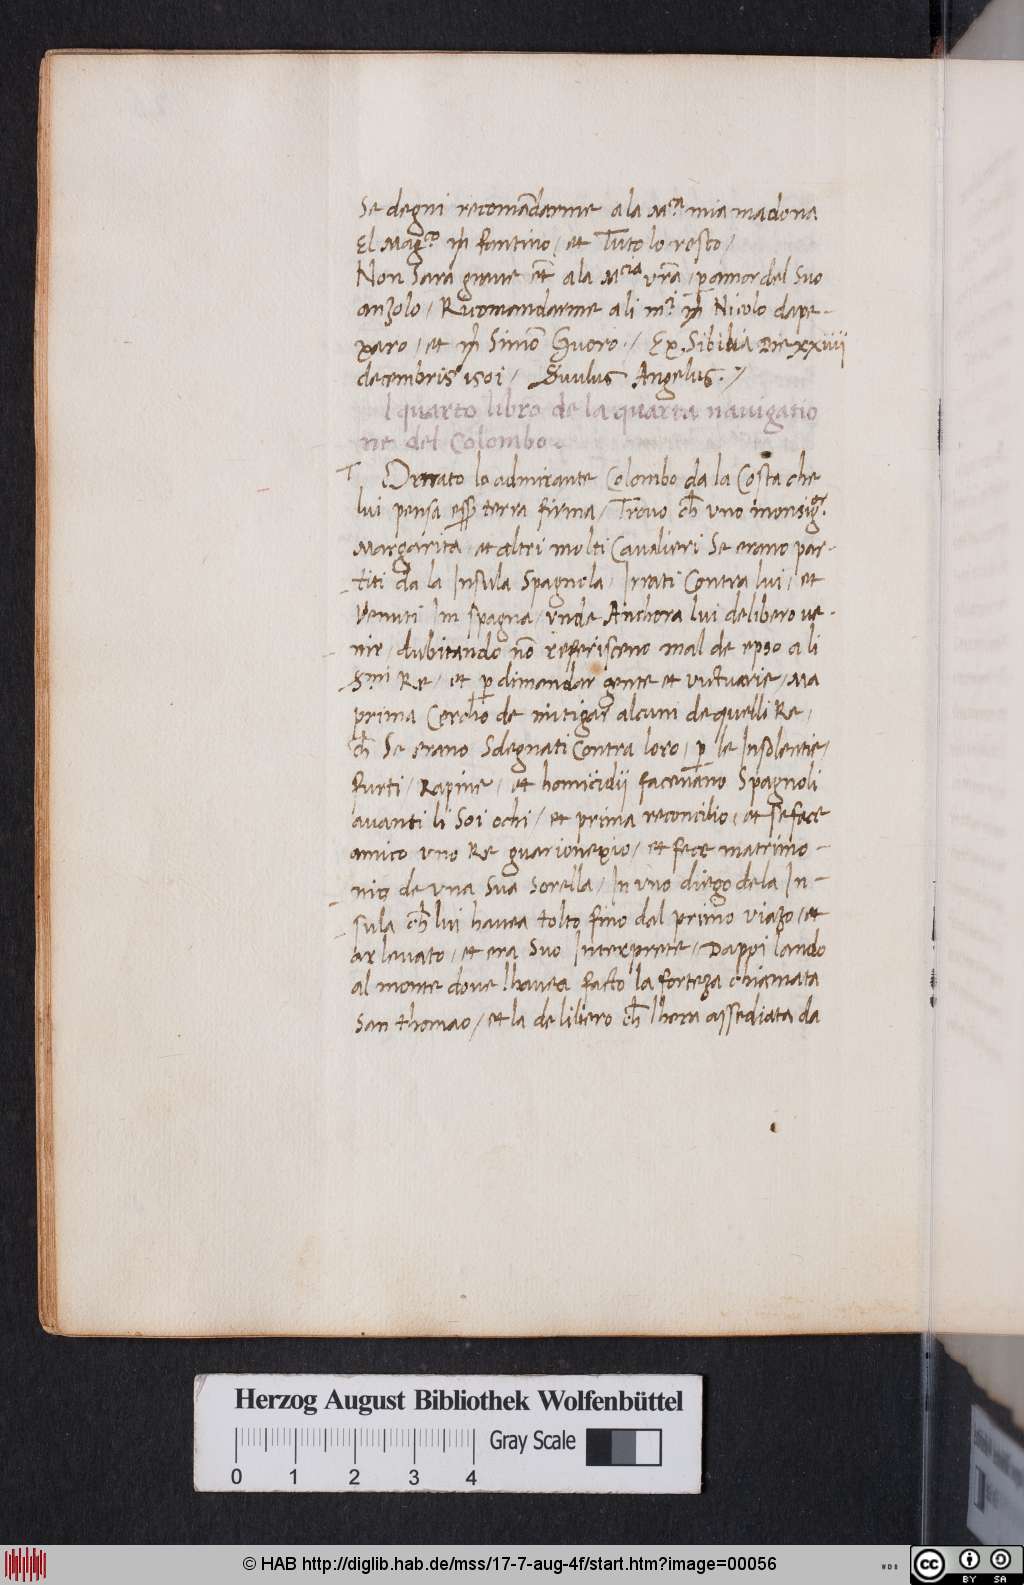 Se degni recomãdarme a la M.ta mia madona
El Mag.co m̃ fantino / et Tuto lo resto /
Non Sara graue et̃ a la M.cia vr̃a / p amor del Suo
anzolo / Ricomandarme a li m.ci m̃ Nicolo da pe-
xaro / et m̃ Simõ Guoro. / Ex Sibilia Die xxiiii
decembris 1501 / Suulus Angelus. /
l quarto libro de la quarta nauigatio
ne del Colombo.
T Ornato lo admirante Colombo da la Costa che
lui pensa esser̃ terra firma / Trouo ch̃ vno monsig.or
Margarita et altri molti Caualieri Se erano par-
titi da la Insula Spagnola / Irrati Contra lui / et
Venuti In spagna / vnde Anchora lui delibero ve-
nir / dubitando nõ referisceno mal de epso a li
S.mi Re / et p dimandar gente et victuarie / Ma
prima Cercho de mitigar alcuni de quelli Re /
ch̃ Se erano Sdegnati Contra loro / p le Insolentie /
furti / Rapine / et homicidij faceuano Spagnoli
auanti li Soi ochi / et prima reconcilio / et se fece
amico vno Re guarionexio / et fece matrimo-
nio de vna Sua Sorella / In vno diego de la In-
sula ch̃ lui hauea tolto fino dal primo viazo / et
arleuato / et era Suo Interprete / Dappi lando
al monte doue lhauea facto la forteza chiamata
San thomao / et la delibero ch̃ lhera assediata da
Herzog August Bibliothek Wolfenbüttel
Gray Scale
0 1 2 3 4
© HAB http://diglib.hab.de/mss/17-7-aug-4f/start.htm?image=00056
WDB
cc BY SA